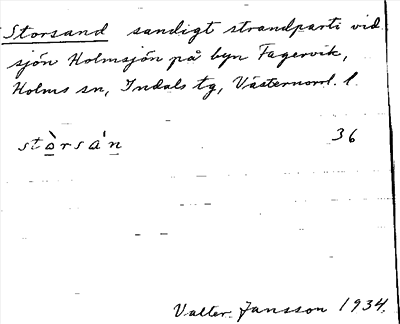 Storsand sandigt strandparti vid
sjön Holmsjön på byn Fagervik,
Holms sn, Indals tg, Västernorrl. l.
stò̱rsá̱ṉ 36
Valter Jansson 1934.